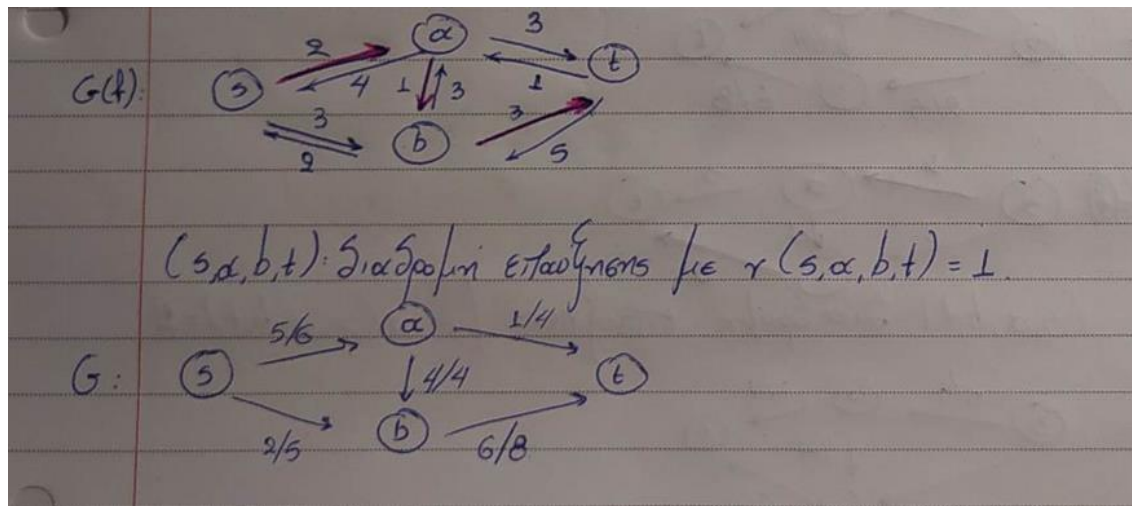 G(f):
s 2 a 3 t
4 1 3 1
3 b 3
2 5
(s,a,b,t): διαδρομή επαύξησης με r(s,a,b,t) = 1.
G: s 5/6 a 1/4 t
4/4
2/5 b 6/8